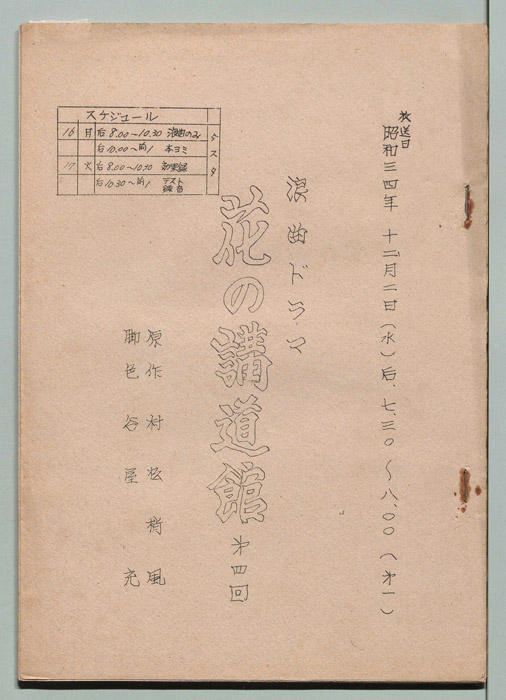 放送日
昭和三四年 十二月二日(水)后、七、三〇〜八、〇〇(第一)
浪曲ドラマ
花の講道館 第四回
原作 村松梢風
脚色 谷屋 充
スケジュール
16 月 后8.00〜10.30 浪曲のみ
后10.00〜前1 本ヨミ
17 火 后8.00〜10.30
后10.30〜前1 テスト 録音